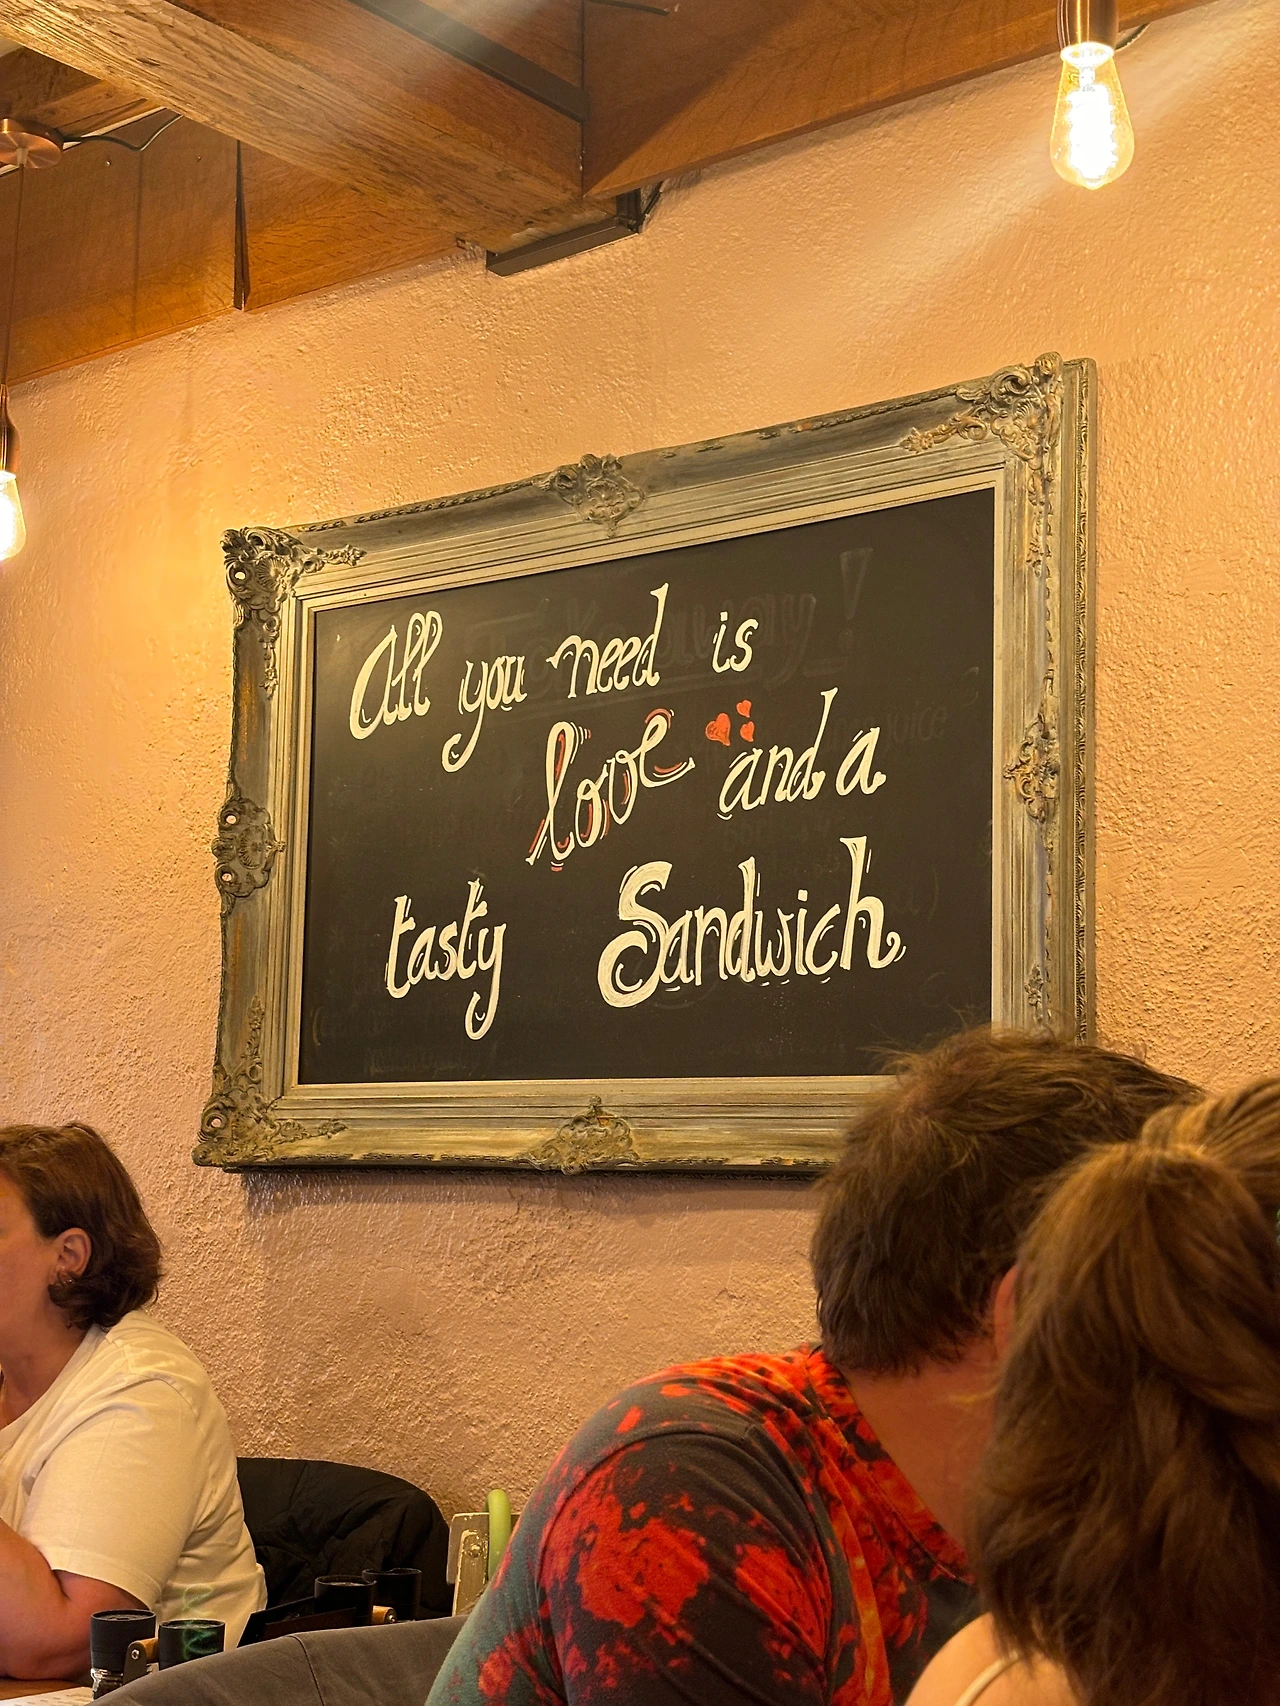 All you need is
love and a
tasty Sandwich